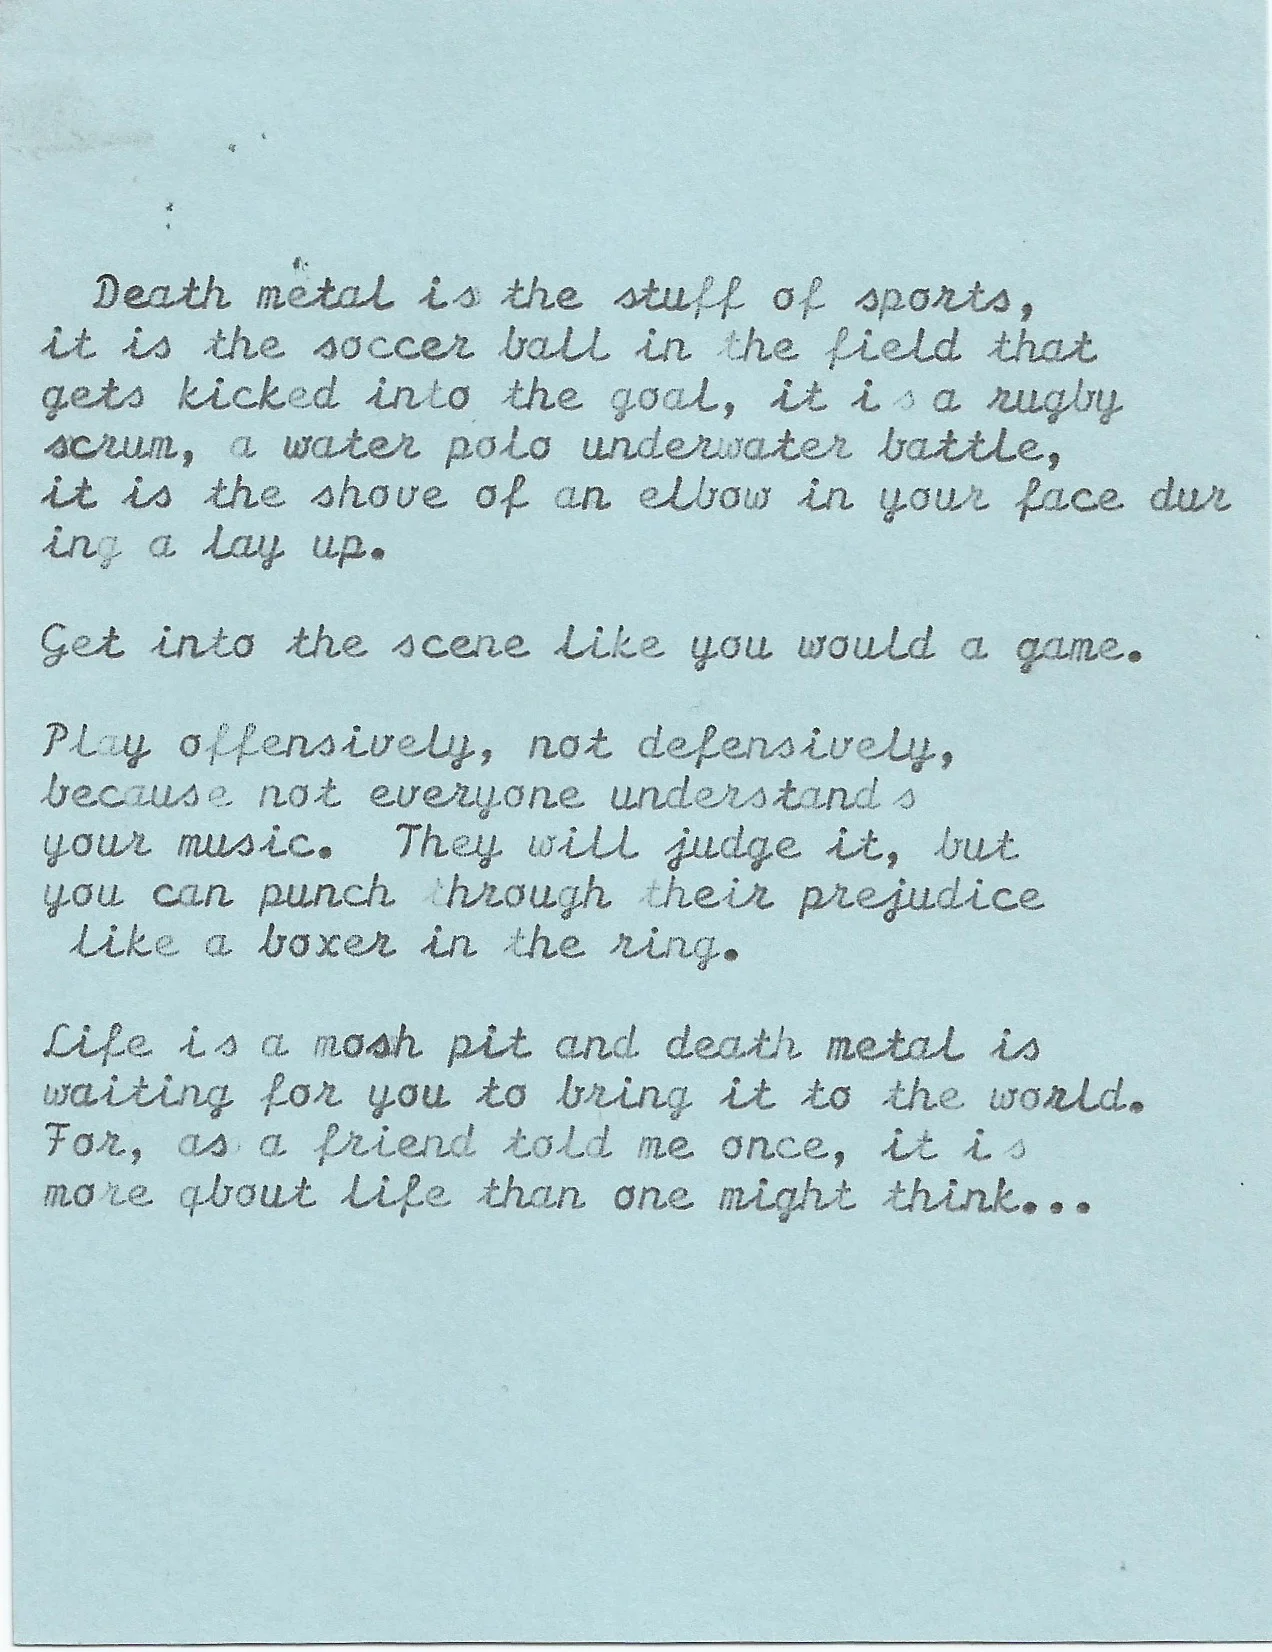 Death metal is the stuff of sports,
it is the soccer ball in the field that
gets kicked into the goal, it is a rugby
scrum, a water polo underwater battle,
it is the shove of an elbow in your face dur
ing a lay up.
Get into the scene like you would a game.
Play offensively, not defensively,
because not everyone understands
your music.  They will judge it, but
you can punch through their prejudice
like a boxer in the ring.
Life is a mosh pit and death metal is
waiting for you to bring it to the world.
For, as a friend told me once, it is
more qbout life than one might think...